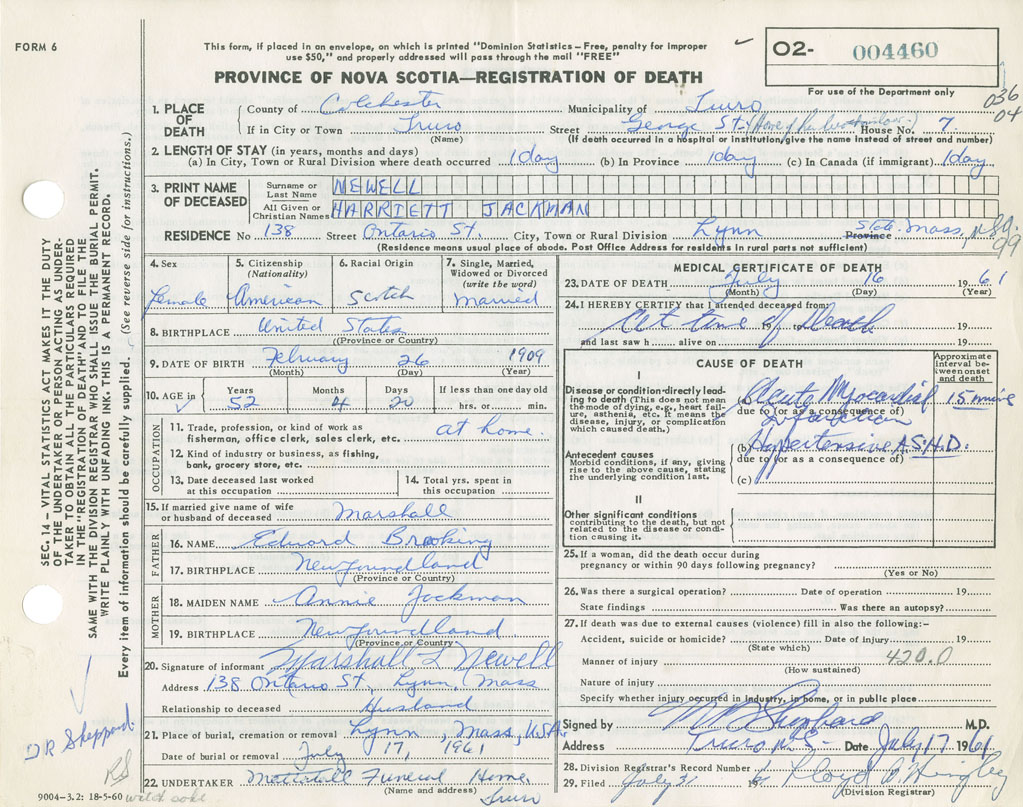 FORM 6
This form, if placed in an envelope, on which is printed "Dominion Statistics – Free, penalty for improper
use $50," and properly addressed will pass through the mail "FREE"
O2- 004460
For use of the Department only
036
04
PROVINCE OF NOVA SCOTIA—REGISTRATION OF DEATH
1. PLACE OF DEATH
County of Colchester Municipality of Truro
If in City or Town Truro Street George St. (Home of House No. 7.
(Name) (If death occurred in a hospital or institution, give the name instead of street and number)
2. LENGTH OF STAY (in years, months and days)
(a) In City, Town or Rural Division where death occurred 1 day (b) In Province 1 day (c) In Canada (if immigrant) 1 day
3. PRINT NAME OF DECEASED
Surname or Last Name NEWELL
All Given or Christian Names HARRIETT JACKMAN
RESIDENCE No 138 Street Ontario St. City, Town or Rural Division Lynn Province State. Mass,
99
(Residence means usual place of abode. Post Office Address for residents in rural parts not sufficient)
4. Sex Female
5. Citizenship (Nationality) American
6. Racial Origin Scotch
7. Single, Married, Widowed or Divorced (write the word) Married
8. BIRTHPLACE United States
(Province or Country)
9. DATE OF BIRTH February 26 1909
(Month) (Day) (Year)
10. AGE in Years 52 Months 4 Days 20 If less than one day old hrs. or min.
OCCUPATION
11. Trade, profession, or kind of work as
fisherman, office clerk, sales clerk, etc. at home
12. Kind of industry or business, as fishing,
bank, grocery store, etc.
13. Date deceased last worked
at this occupation
14. Total yrs. spent in
this occupation
15. If married give name of wife
or husband of deceased Marshall
FATHER
16. NAME Edward Brooking
17. BIRTHPLACE Newfoundland
(Province or Country)
MOTHER
18. MAIDEN NAME Annie Jackman
19. BIRTHPLACE Newfoundland
(Province or Country)
20. Signature of informant Marshall L Newell
Address 138 Ontario St, Lynn, Mass
Relationship to deceased Husband
21. Place of burial, cremation or removal Lynn, Mass, USA.
Date of burial or removal July 17, 1961
22. UNDERTAKER Funeral Home
(Name and address) Truro
9004–3.2: 18-5-60
MEDICAL CERTIFICATE OF DEATH
23. DATE OF DEATH July 16 1961
(Month) (Day) (Year)
24. I HEREBY CERTIFY that I attended deceased from:
At time of Death
19 19
and last saw h alive on 19
CAUSE OF DEATH
Approximate interval between onset and death
I
Disease or condition directly leading to death (This does not mean
the mode of dying, e.g., heart failure, asthenia, etc. It means the
disease, injury, or complication
which caused death.)
(a) Acute Myocardial Infarction 15 mins
due to (or as a consequence of)
Antecedent causes
Morbid conditions, if any, giving
rise to the above cause, stating
the underlying condition last.
(b) Hypertensive A.S.H.D.
due to (or as a consequence of)
(c)
II
Other significant conditions
contributing to the death, but not
related to the disease or condition causing it.
25. If a woman, did the death occur during
pregnancy or within 90 days following pregnancy?
(Yes or No)
26. Was there a surgical operation? Date of operation 19
State findings Was there an autopsy?
27. If death was due to external causes (violence) fill in also the following:–
Accident, suicide or homicide? Date of injury 19
(State which)
420.0
Manner of injury
(How sustained)
Nature of injury
Specify whether injury occurred in industry, in home, or in public place
Signed by Sheppard M.D.
Address Truro N.S. Date July 17 1961
28. Division Registrar's Record Number
29. Filed July 31 Lloyd
(Division Registrar)
SEC. 14 – VITAL STATISTICS ACT MAKES IT THE DUTY
OF THE UNDERTAKER OR PERSON ACTING AS UNDER-
TAKER TO OBTAIN ALL THE PARTICULARS REQUIRED
IN THE "REGISTRATION OF DEATH" AND TO FILE THE
SAME WITH THE DIVISION REGISTRAR WHO SHALL ISSUE THE BURIAL PERMIT.
WRITE PLAINLY WITH UNFADING INK. THIS IS A PERMANENT RECORD.
Every item of information should be carefully supplied. (See reverse side for instructions.)
DR Sheppard
RS